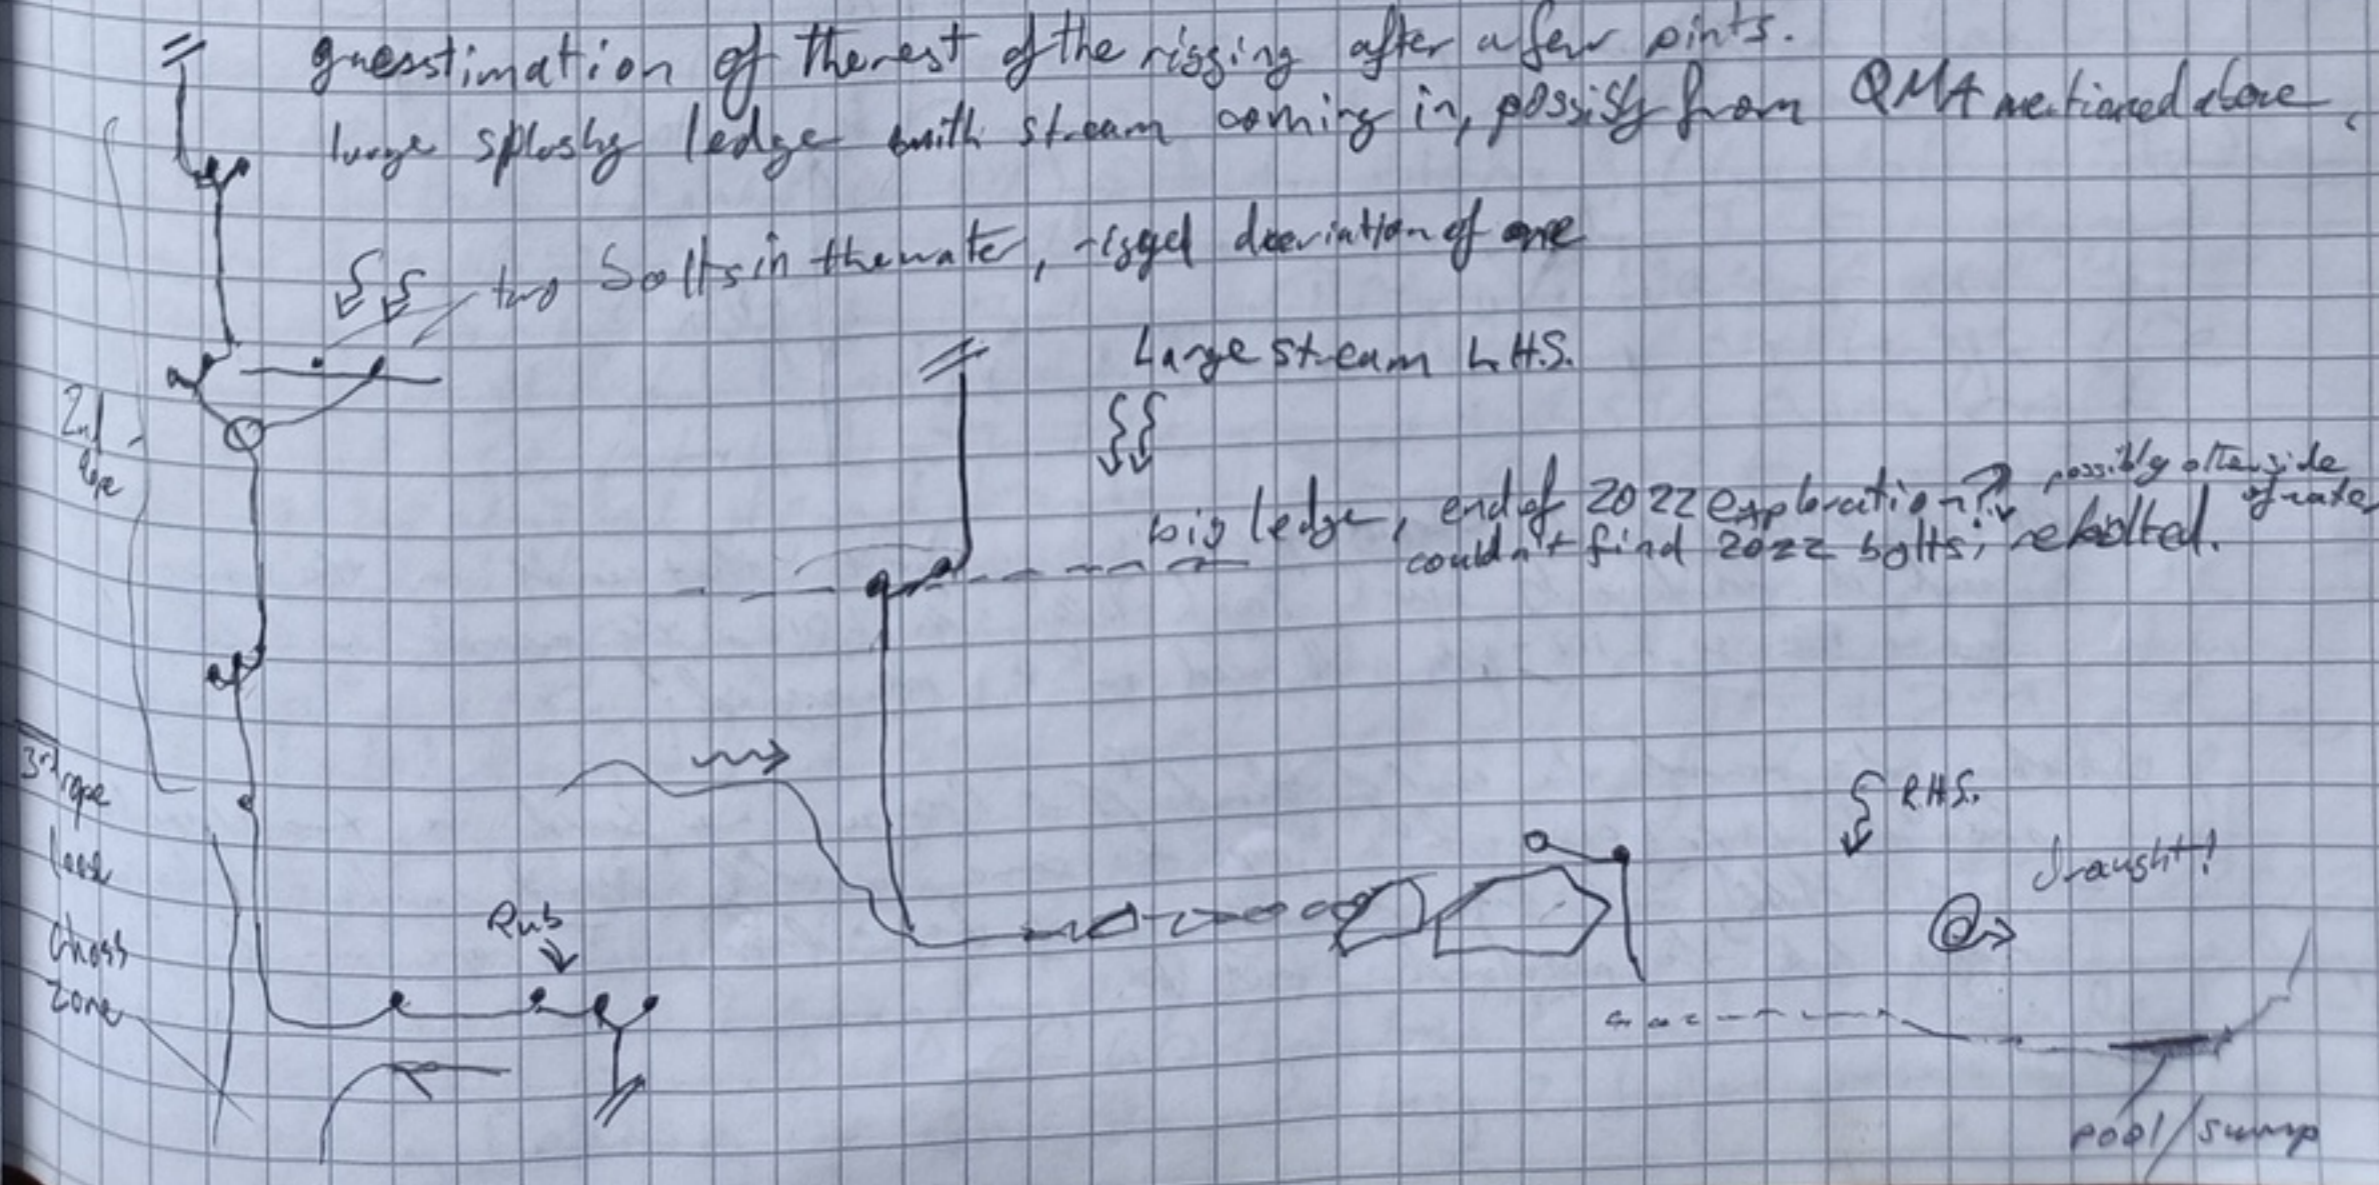 guesstimation of the rest of the rigging after a few pints.
large splashy ledge with stream coming in, possibly from QMA mentioned above,
two bolts in the water, rigged deeviation of one
Large stream L.H.S.
big ledge, end of 2022 exploration? possibly other side
of water
couldn't find 2022 bolts, rebolted.
2nd
rope
3rd rope
loose
choss
zone
Rub
R.H.S.
draught!
pool/sump